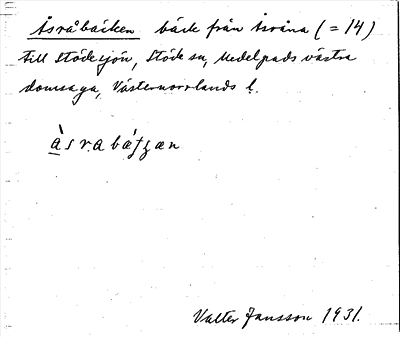 Åsråbäcken bäck från Åsråna (= 14)
till Stödesjön, Stöde sn, Medelpads västra
domsaga, Västernorrlands l.
Valter Jansson 1931.